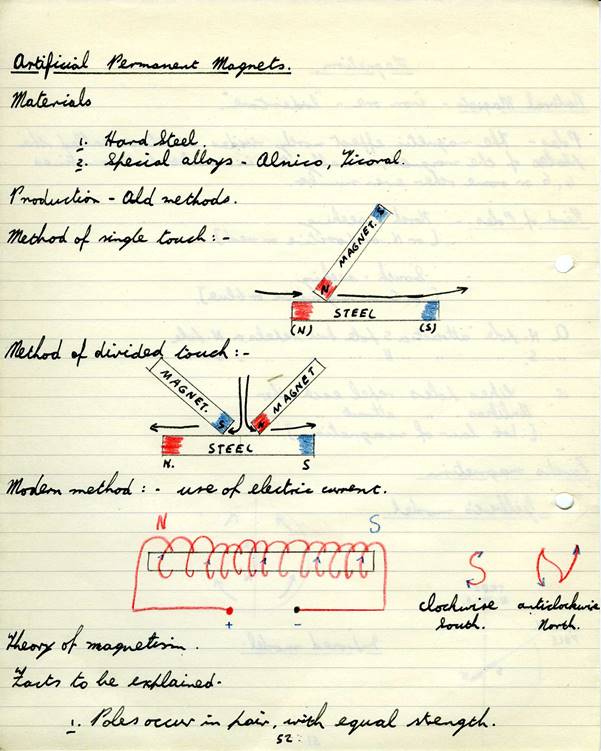 Artificial Permanent Magnets.
Materials
1. Hard Steel.
2. Special alloys - Alnico, Ticonal.
Production - Old methods.
Method of single touch :-
S
MAGNET.
N
STEEL
(N) (S)
Method of divided touch :-
MAGNET. S
N MAGNET
STEEL
N. S
Modern method :- use of electric current.
N S
+ -
S N
clockwise anticlockwise
South. North.
Theory of magnetism.
Facts to be explained.
1. Poles occur in pair, with equal strength.
52.